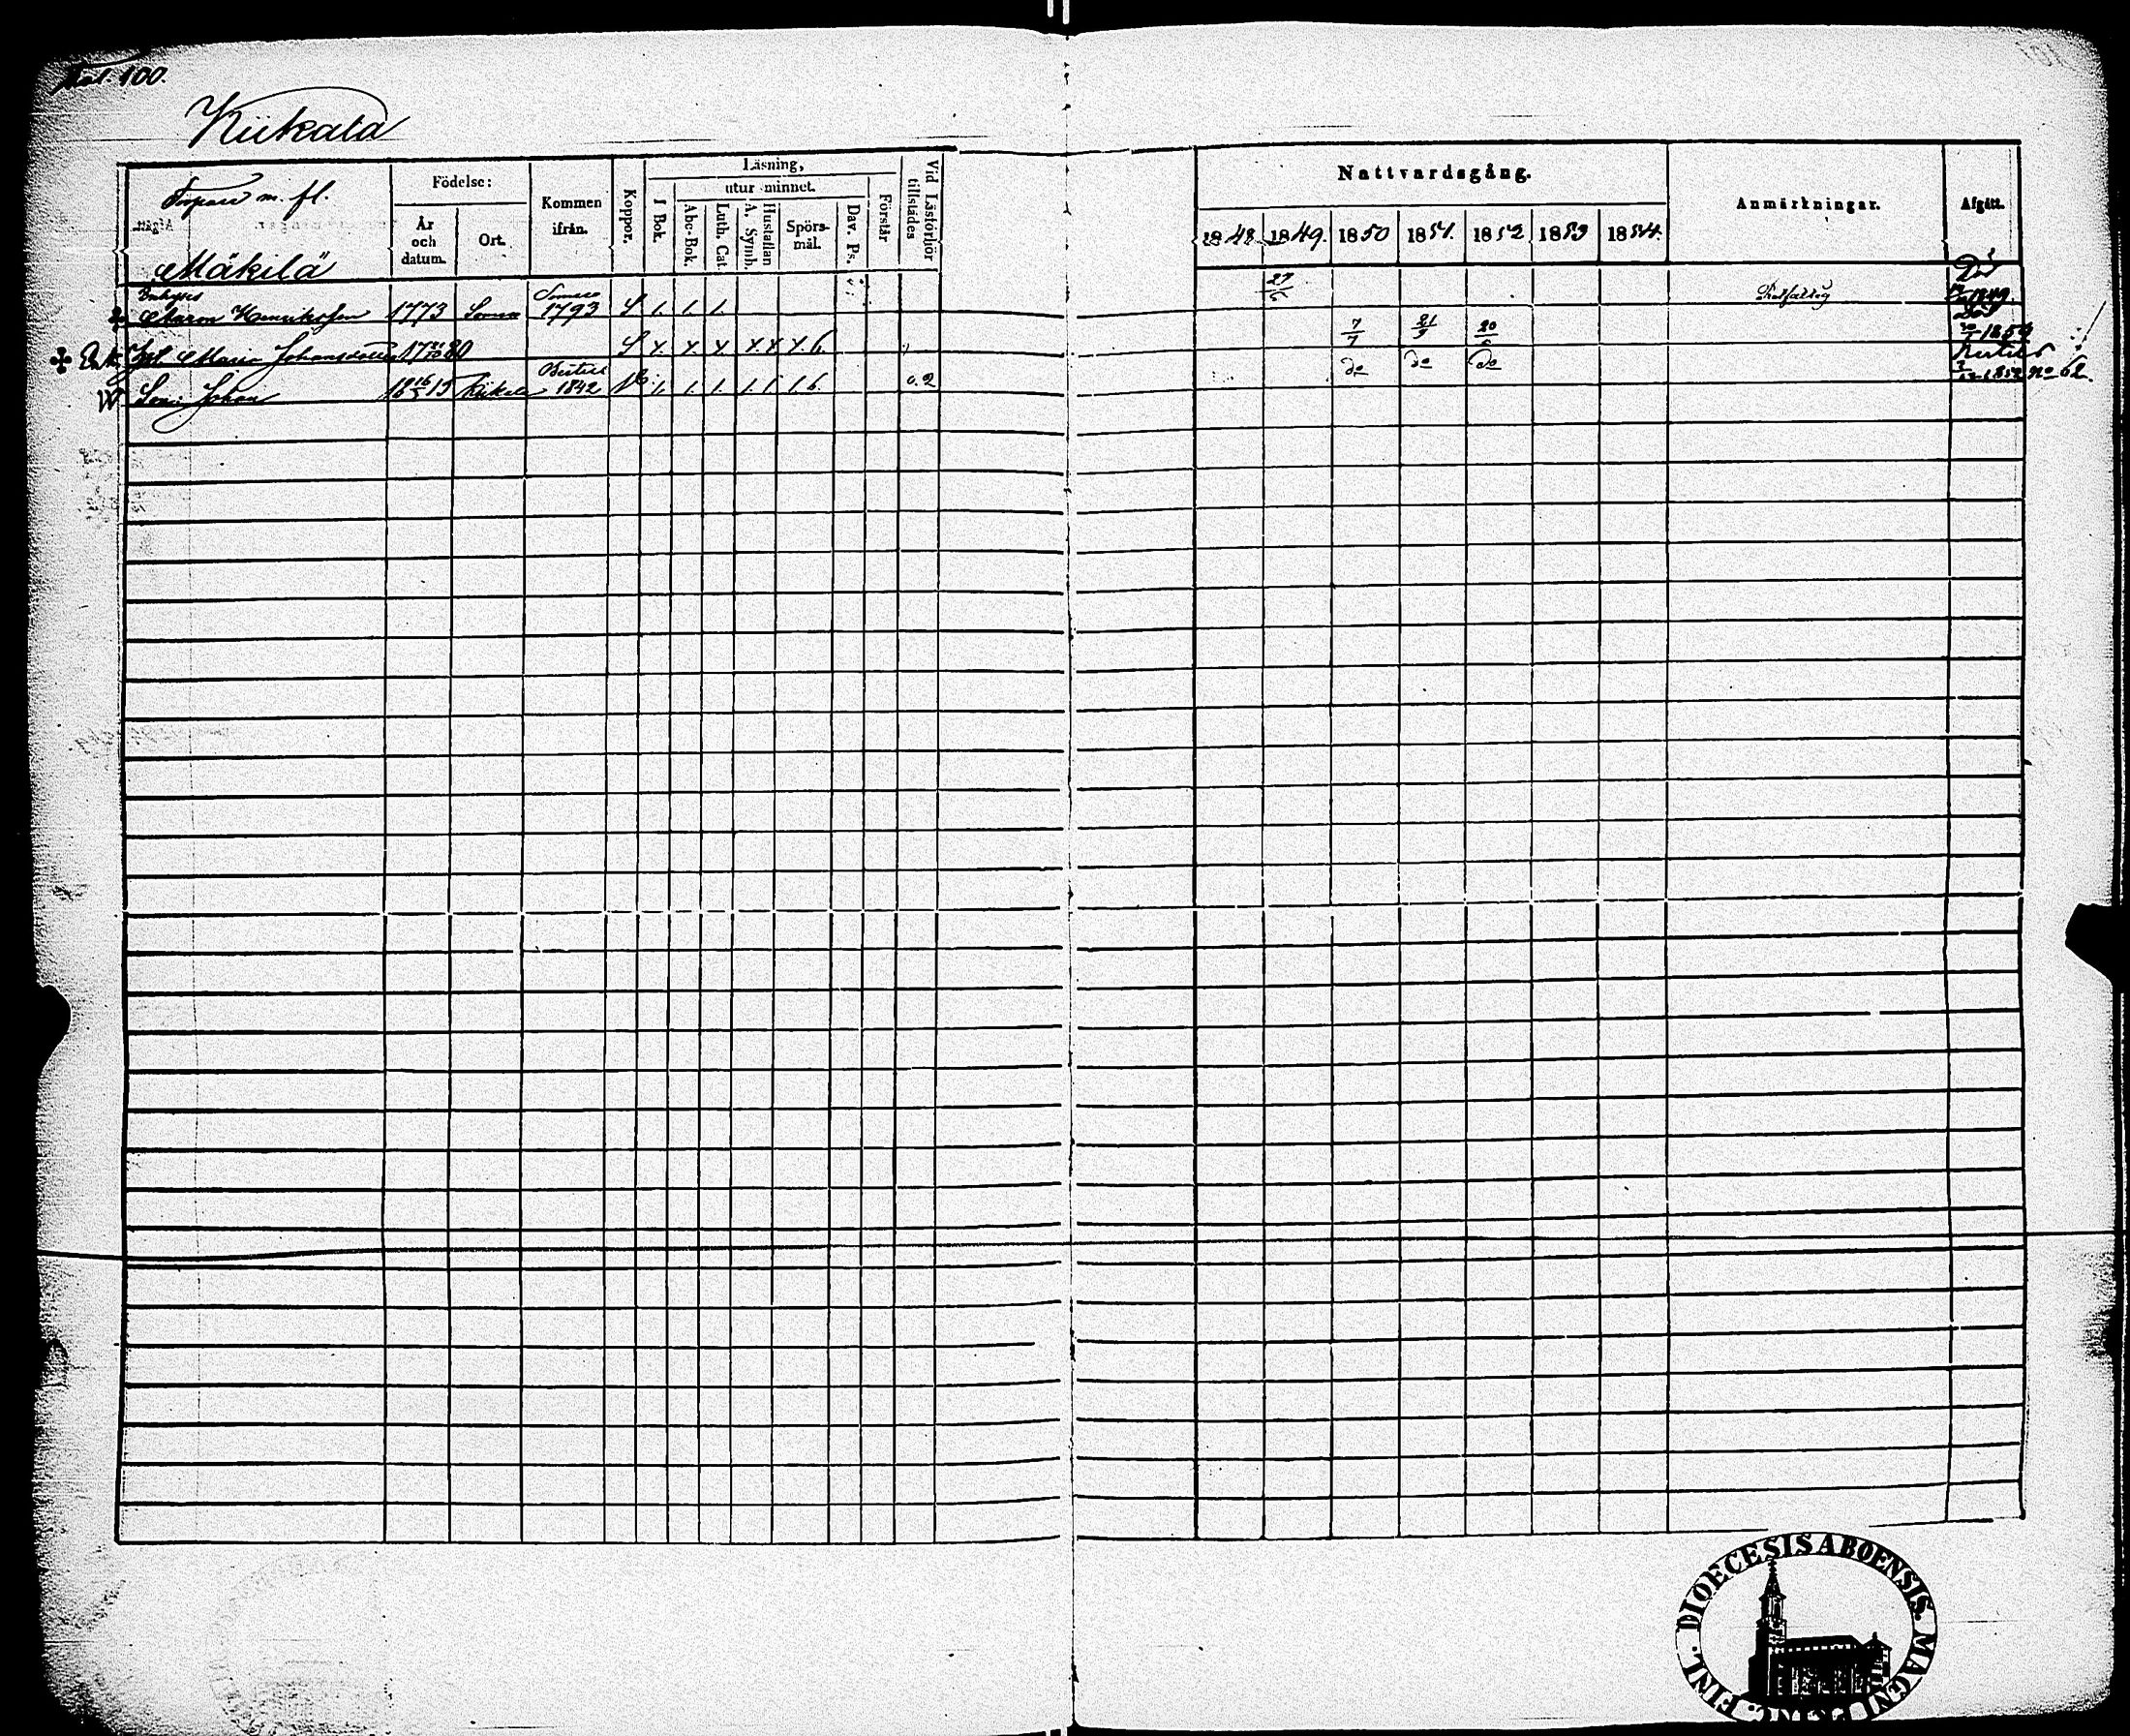 Fol. 100.
Kiikala
m. fl.
Mäkilä
Födelse:
År och datum.
Ort.
Kommen ifrån.
Koppor.
Läsning,
I Bok.
utur minnet.
Abc-Bok.
Luth. Cat.
A. Symb.
Hustaflan
Spörsmål.
Dav. Ps.
Förstår
Vid Läsförhör tillstädes
Nattvardsgång.
1848 1849. 1850 1851. 1852 1853 1854.
Anmärkningar.
Afgått.
Aaron Henriksson 1773 Somero Somero 1793 S 1. 1. 1. 27/5 Död 1849.
Enk. Maria Johansdotter 1780 S x. x. x. x x x. 6. 7/7 21/9 20/6 Död 1854
Son Johan 1815 Kiikala 1842 1. 1. 1. 1. 1 1. 6. 0. 2 do do do 1852 No 62.
FINL. DIOECESIS ABOENSIS. MAGNI PRINC.